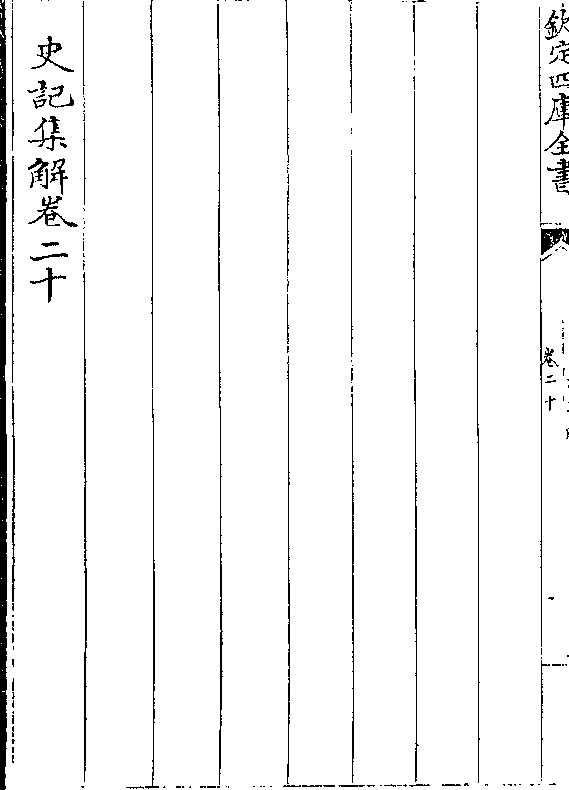 欽定四庫全書
卷二十
史記集解卷二十